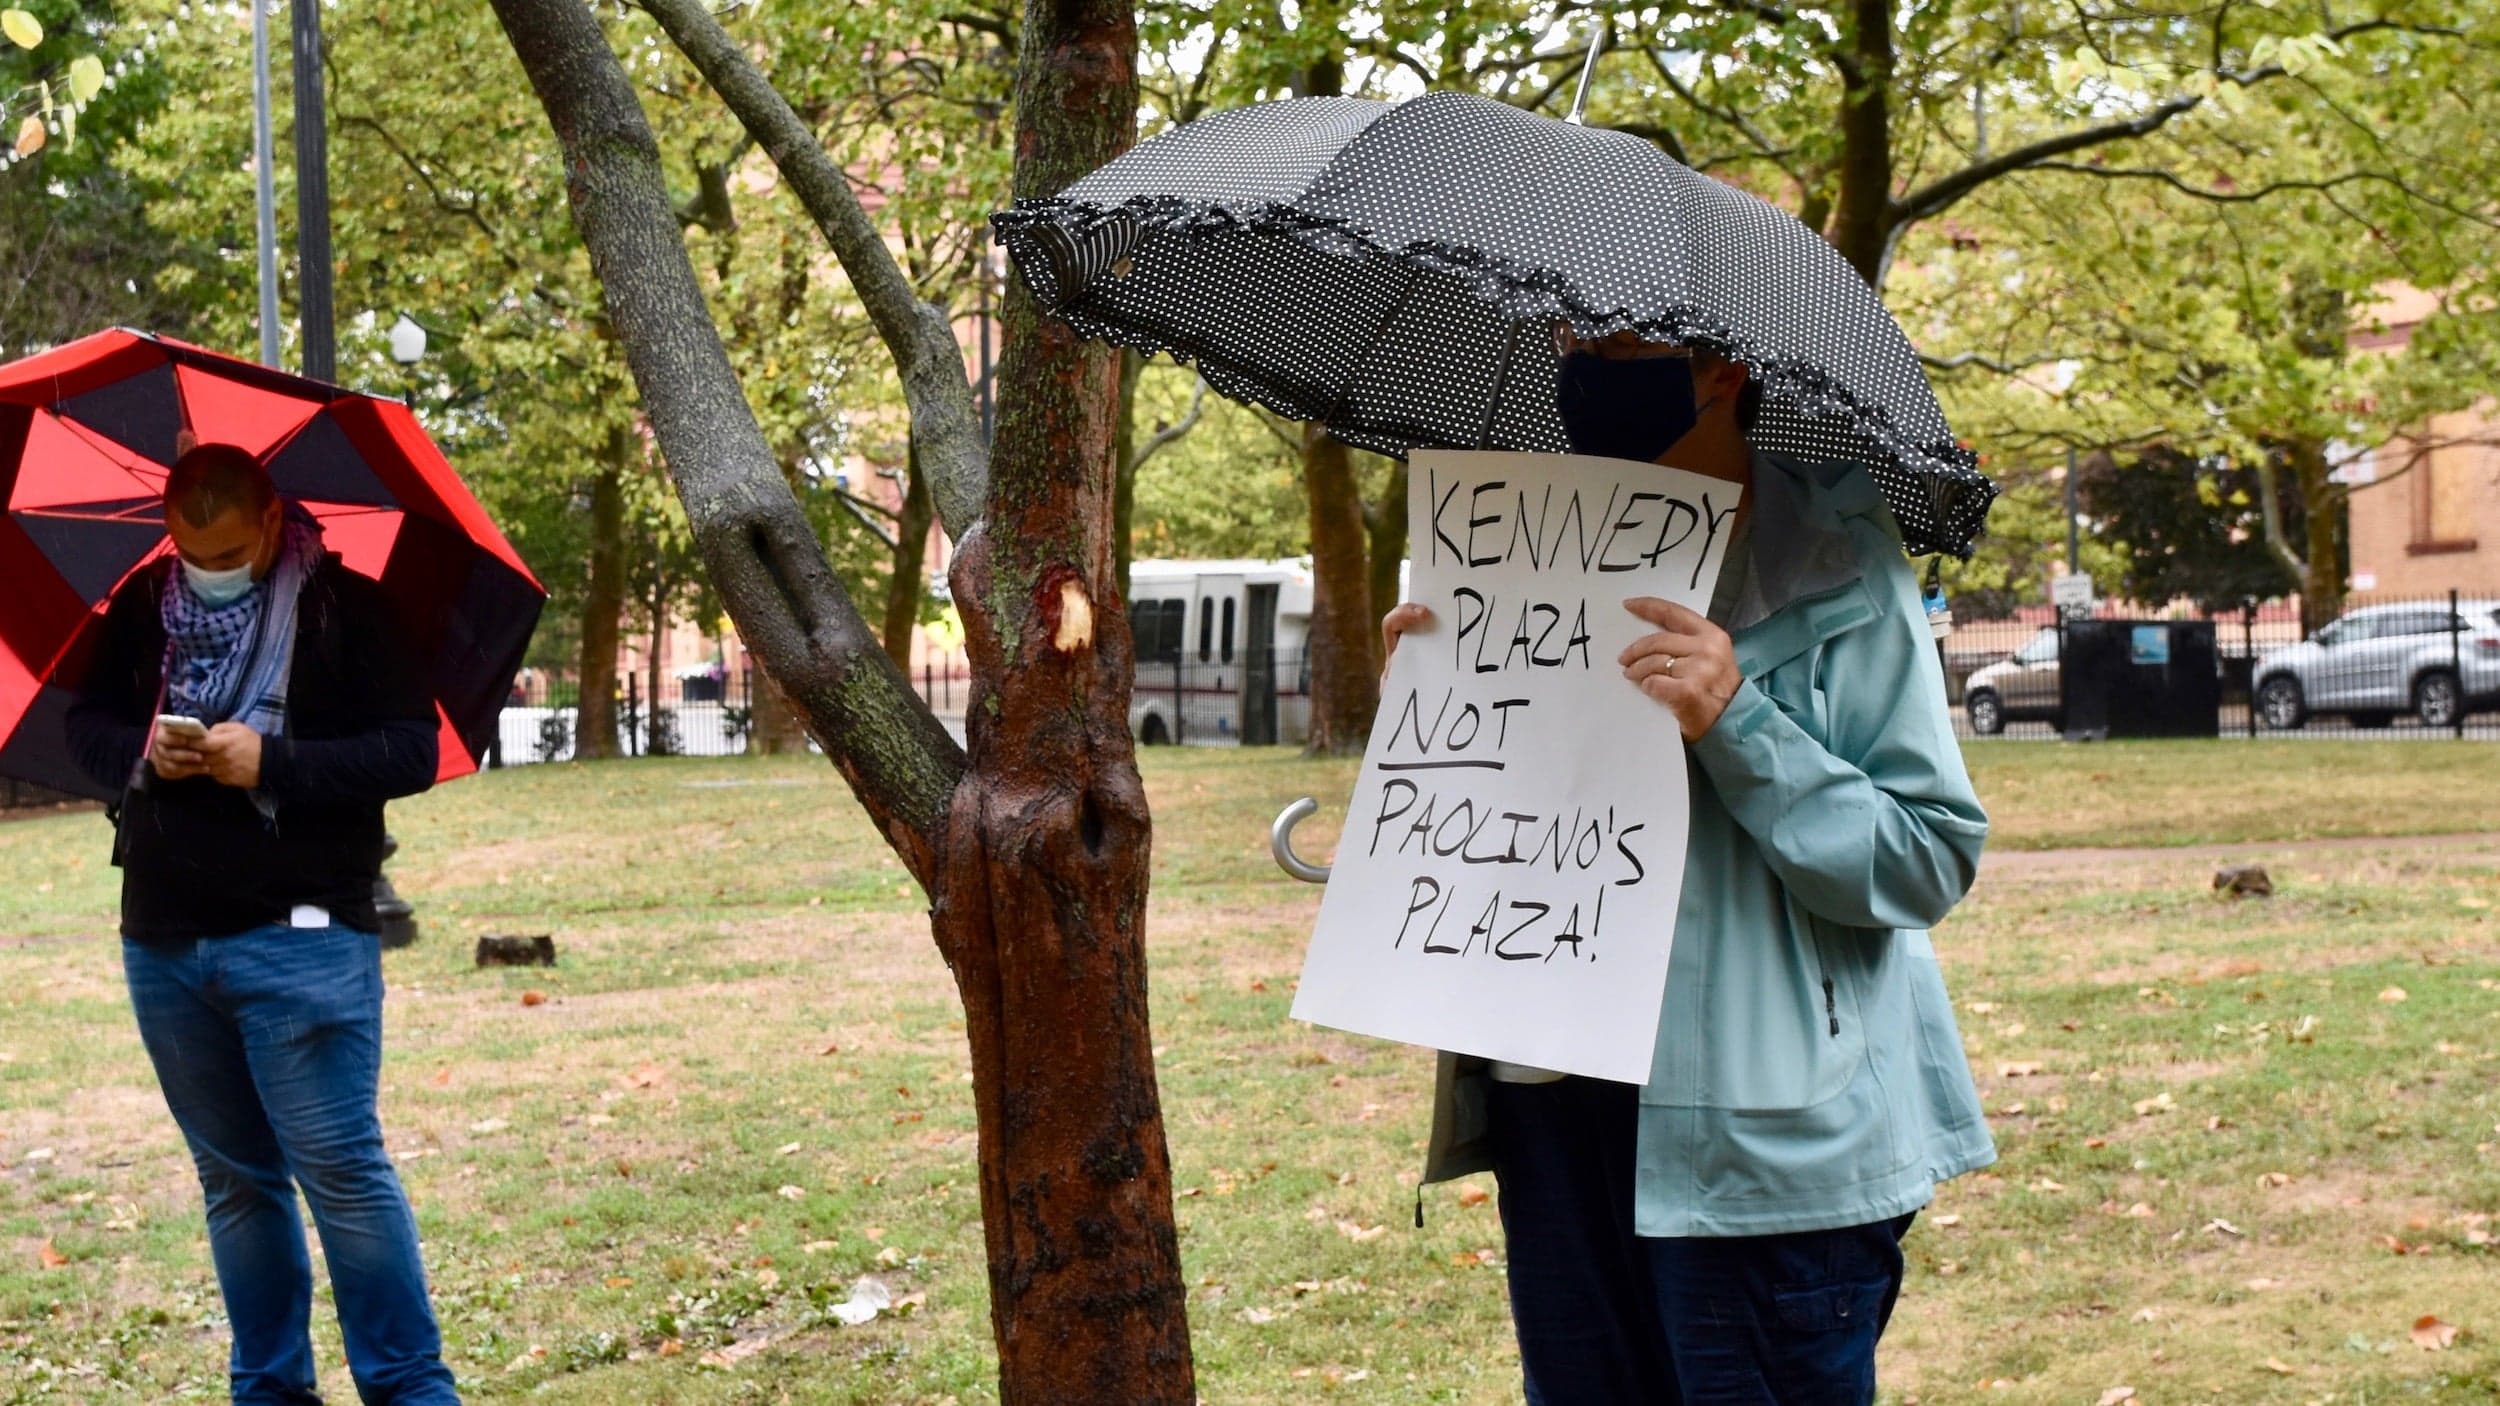 KENNEDY
PLAZA
NOT
PAOLINO'S
PLAZA!